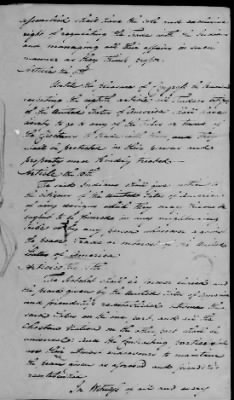 assembled shall have the sole and exclusive
right of regulating the trade with the Indians
and managing all their affairs in such
manner as they think proper.
Article the 9th
Until the pleasure of Congress be known
respecting the eighth article, all traders citizens
of the United States of America shall have
liberty to go to any of the tribes or towns of
the to trade with them, and they
shall be protected in their persons and
property and kindly treated.
Article the 10th
The said Indians shall give notice to
the citizens of the United States of America
of any designs which they may know or
suspect to be formed in any neighbouring
tribe or by any person whosoever against
the peace, trade or interest of the United
States of America.
Article the 11th
The hatchet shall be forever buried and
the peace given by the United States of America
and friendship re-established between the
said States on the one part, and all the
nation on the other part shall be
universal and the contracting parties shall
use their utmost endeavours to maintain
the peace given as aforesaid and friendship
re-established.
In Witness of all and every